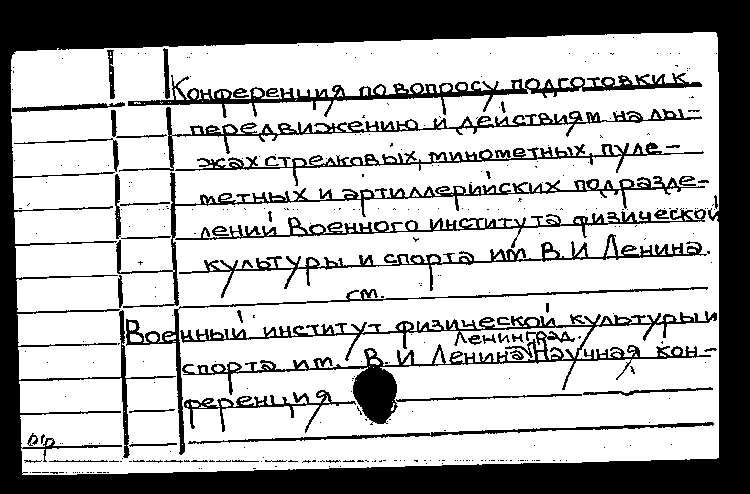 Конференция по вопросу подготовки к
передвижению и действиям на лы=
жах стрелковых, минометных, пуле-
метных и артиллерийских подразде-
лений Военного института физической
культуры и спорта им. В.И Ленина.
см.
Военный институт физической культуры и
Ленинград.
спорта им. В.И Ленина. Научная кон-
ференция